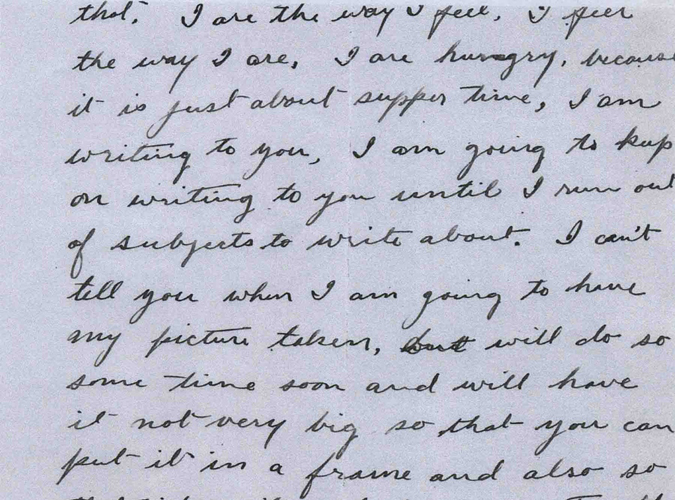 that. I are the way I feel. I feel
the way I are. I are hungry, because
it is just about supper time, I am
writing to you, I am going to keep
on writing to you until I run out
of subjects to write about. I can't
tell you when I am going to have
my picture taken, but will do so
some time soon and will have
it not very big so that you can
put it in a frame and also so